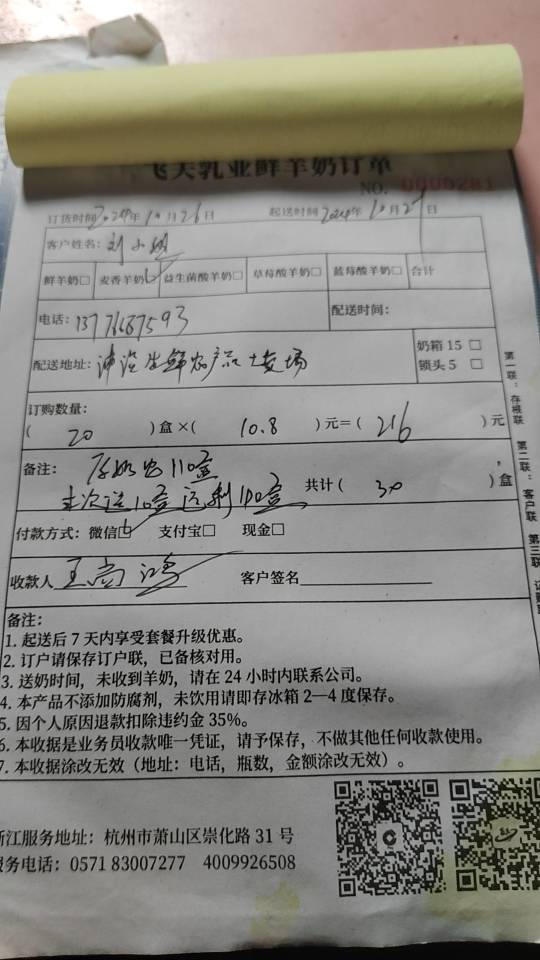 飞天乳业鲜羊奶订单
NO. 0006281
订货时间 2024年10月26日 起送时间 2024年10月27日
客户姓名：刘小
鲜羊奶□ 麦香羊奶☑ 益生菌酸羊奶□ 草莓酸羊奶□ 蓝莓酸羊奶□ 合计
电话： 配送时间：
配送地址： 生鲜农产品 场
奶箱 15 □
锁头 5 □
订购数量：
( 20 ) 盒 ×( 10.8 ) 元＝( 216 ) 元
备注： 110盒
本次送10盒 还剩100盒 共计( 30 ) 盒
付款方式：微信☑ 支付宝□ 现金□
收款人 王尚鸿 客户签名
第一联：存根联
第二联：客户联
第三联
备注：
1. 起送后 7 天内享受套餐升级优惠。
2. 订户请保存订户联，已备核对用。
3. 送奶时间，未收到羊奶，请在 24 小时内联系公司。
4. 本产品不添加防腐剂，未饮用请即存冰箱 2—4 度保存。
5. 因个人原因退款扣除违约金 35%。
6. 本收据是业务员收款唯一凭证，请予保存，不做其他任何收款使用。
7. 本收据涂改无效（地址：电话，瓶数，金额涂改无效）。
浙江服务地址：杭州市萧山区崇化路 31 号
服务电话：0571 83007277 4009926508